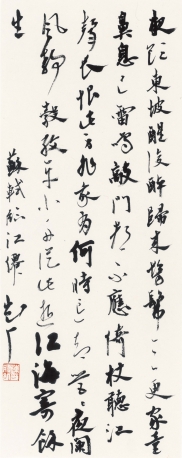 夜飲東坡醒復醉歸來髣髴三更家童
鼻息已雷鳴敲門都不應倚杖聽江
聲長恨此身非我有何時忘却營々夜闌
風靜縠紋平小舟從此逝江海寄餘
生
蘇軾臨江僊